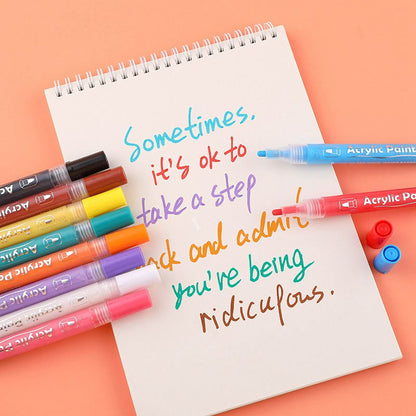 Sometimes.
it's ok to
take a step
back and admit
you're being
ridiculous.
Acrylic Paint
Acrylic Pa
Acrylic
Acrylic
Acrylic
Acrylic
Acrylic Pa
Acrylic Pa
Acrylic Paint
Acrylic Pa